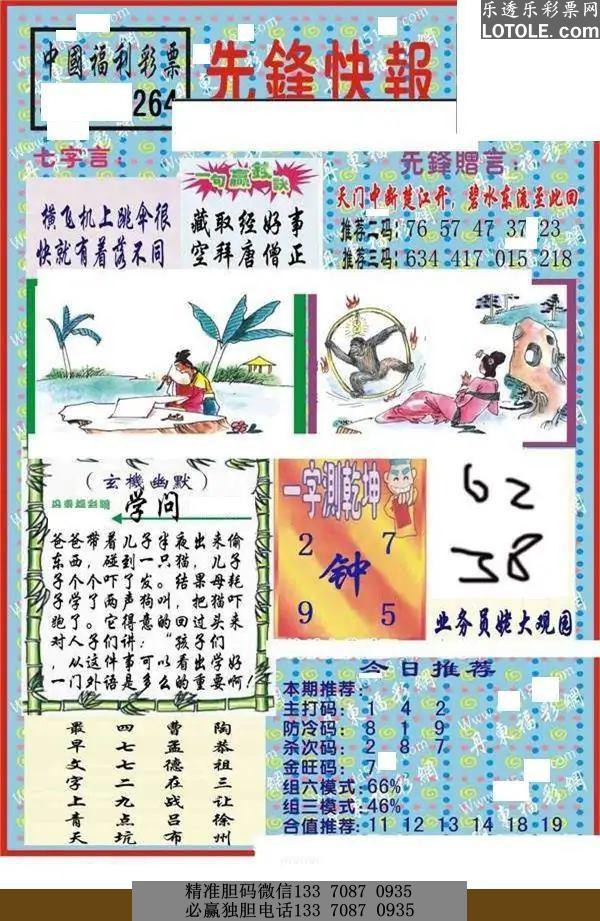 乐透乐彩票网
LOTOLE.COM
中國福利彩票
264
先鋒快報
七字言：
横飞机上跳伞很
快就有着落不同
一句赢錢訣
藏取经好事
空拜唐僧正
先鋒贈言：
天门中断楚江开，碧水东流至此回
推荐二码：76 57 47 37 23
推荐三码：634 417 015 218
（玄機幽默）
学问
爸爸带着儿子半夜出来偷
东西，碰到一只猫，儿子
子个个吓了发。结果母耗
子学了两声狗叫，把猫吓
跑了。它得意的回过头来
对人子们讲：“孩子们
，从这件事可以看出学好
一门外语是多么的重要啊！
一字测乾坤
2 7
钟
9 5
62
38
业务员姥大观园
今日推荐
本期推荐：
主打码：1 4 2
防冷码：8 1 9
杀次码：2 8 7
金旺码：7
组六模式：66%
组三模式：46%
合值推荐：11 12 13 14 18 19
陶恭祖三让徐州
曹孟德在战吕布
四七七二九点坑
最早文字上青天
丹東福彩網
精准胆码微信133 7087 0935
必赢独胆电话133 7087 0935